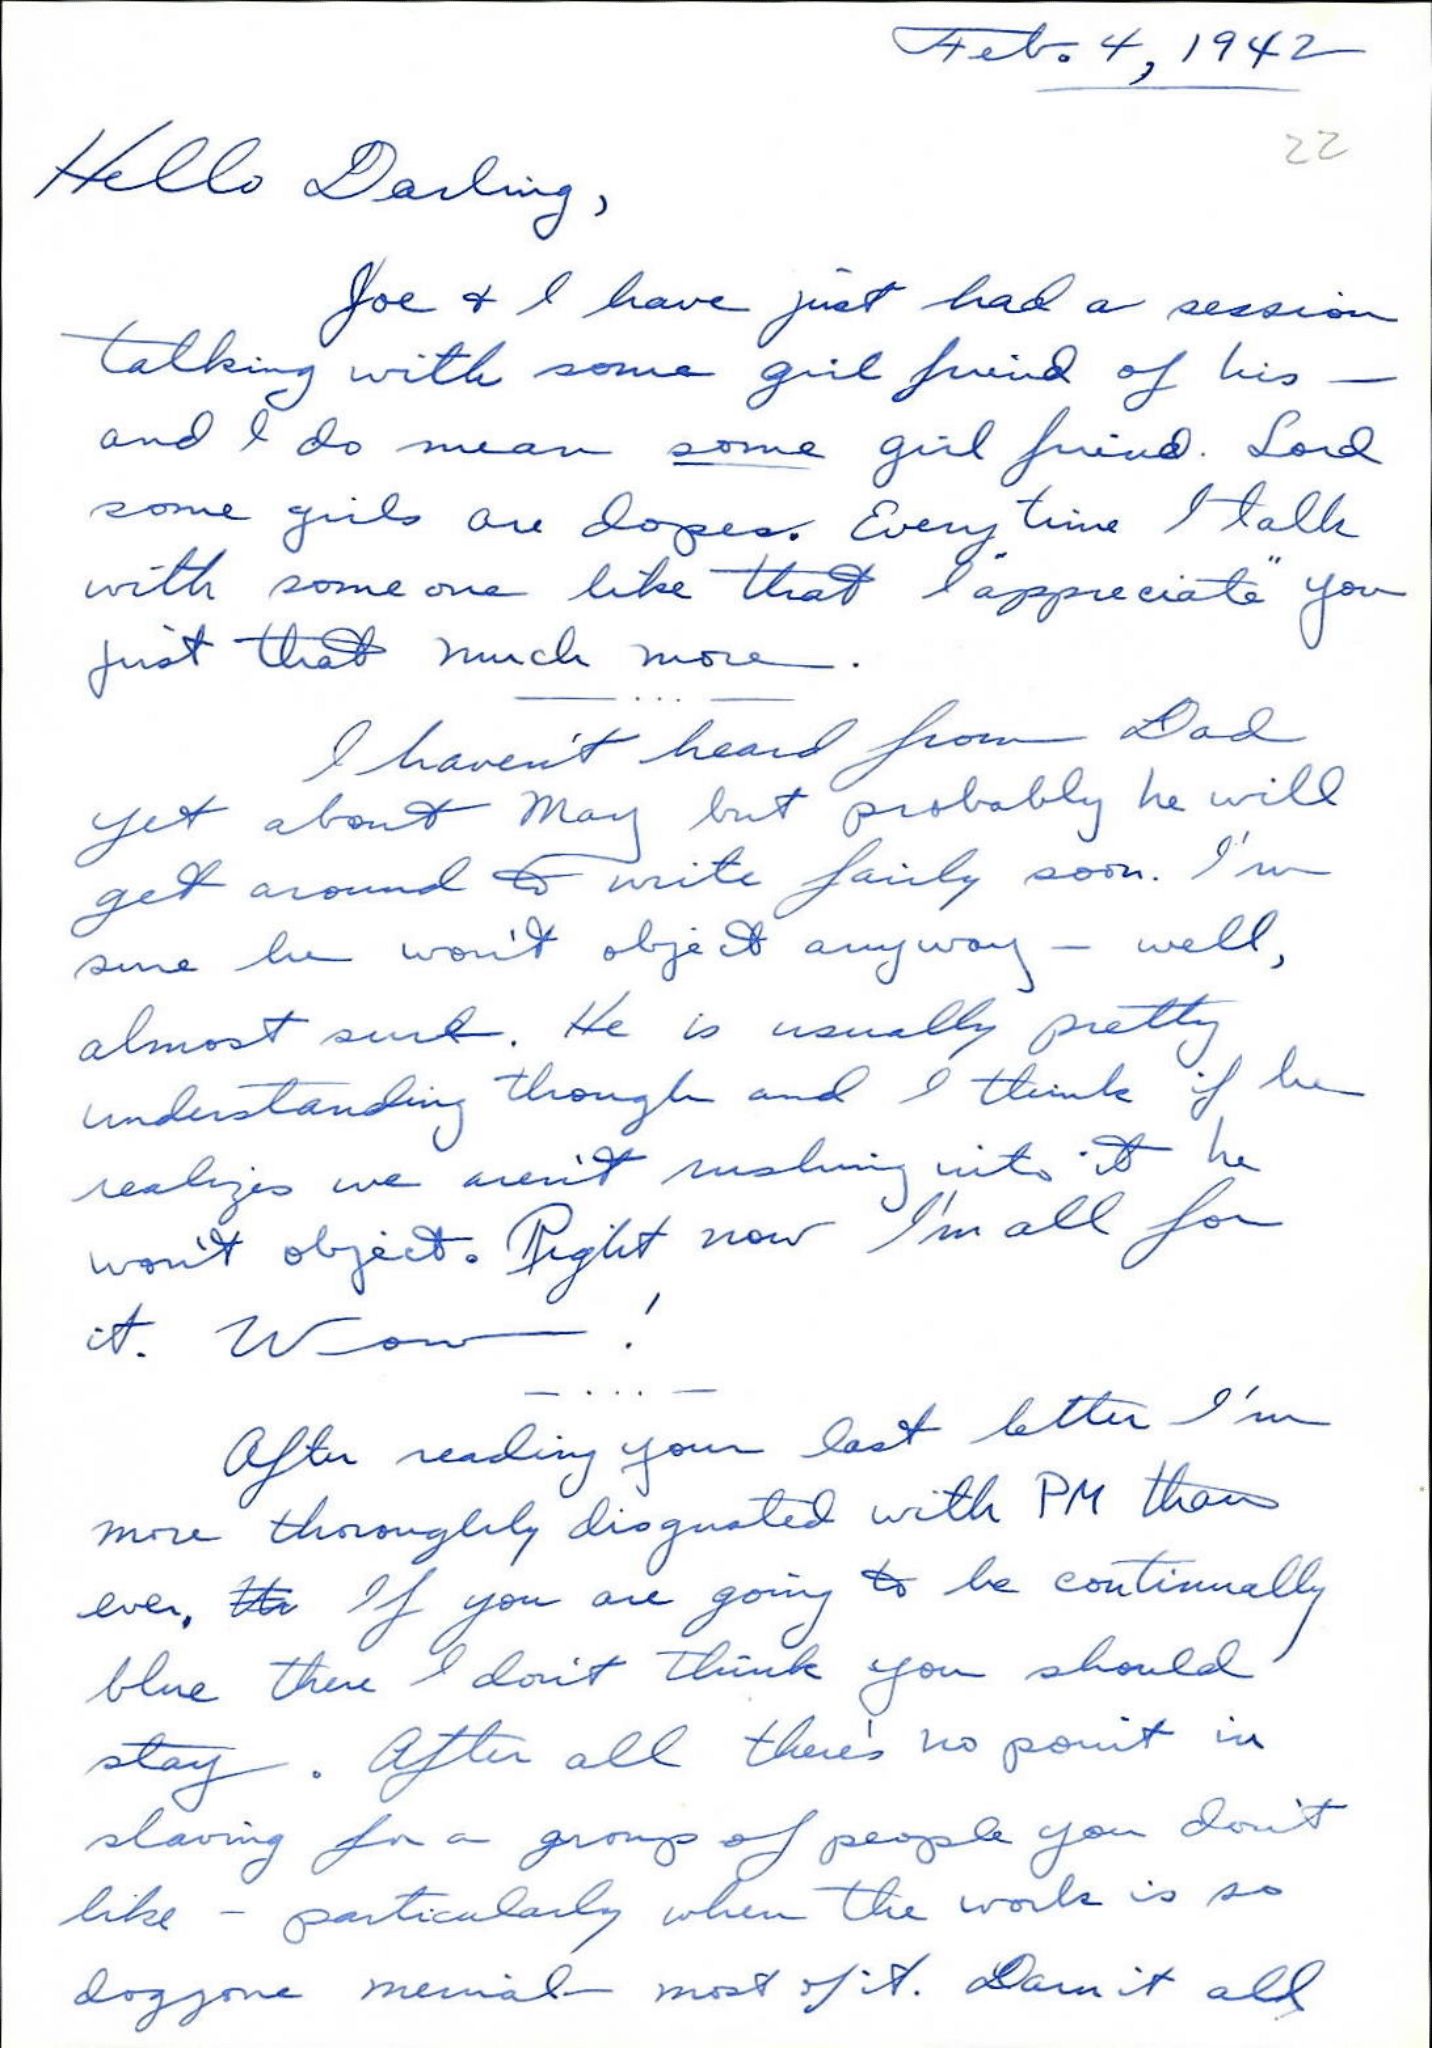 Feb. 4, 1942
22
Hello Darling,
Joe & I have just had a session
talking with some girl friend of his —
and I do mean some girl friend. Lord
some girls are dopes. Every time I talk
with someone like that I "appreciate" you
just that much more.
— ... —
I haven't heard from Dad
yet about May but probably he will
get around to write fairly soon. I'm
sure he won't object anyway — well,
almost sure. He is usually pretty
understanding though and I think if he
realizes we aren't rushing into it he
won't object. Right now I'm all for
it. Wow!
— .... —
After reading your last letter I'm
more thoroughly disgusted with PM than
ever. If you are going to be continually
blue there I don't think you should
stay. After all there's no point in
slaving for a group of people you don't
like – particularly when the work is so
doggone menial most of it. Darn it all